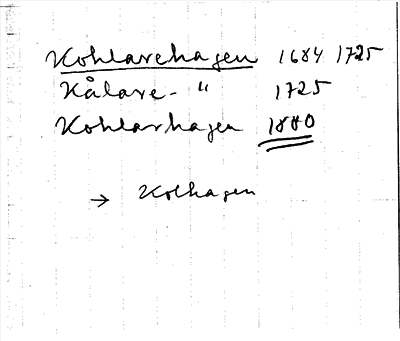 Kohlarehagen 1684 1725
Kålare- " 1725
Kohlarhagen 1880
→ Kolhagen